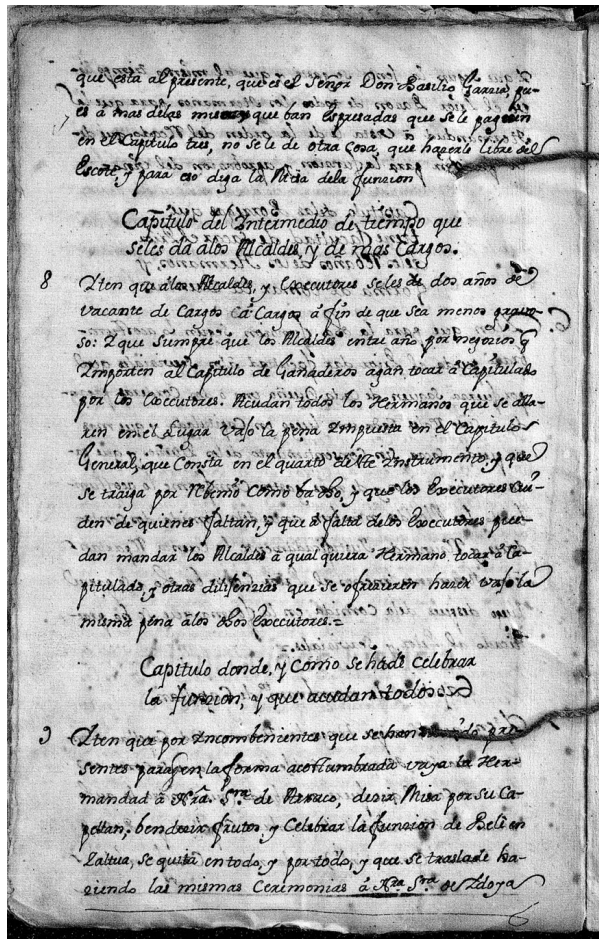 que está al presente, que es el Señor Don Basilio Garcia, pu-
es á mas delas misas, que ban Expresadas que se le paguen
en el Capitulo tres, no se le de otra Cosa, que hazerle libre del
Escote, y para eso diga la Misa dela funzion
Capitulo del Intermedio de tiempo que
se les da alos Alcaldes, y de mas Cargos.
8 Yten que álos Alcaldes, y Executores se les de dos años de
vacante de Cargos á Cargos á fin de que sea menos gravo-
so: Y que siempre que los Alcaldes entre año por negozios q̃
Ymporten al Capitulo de Ganaderos agan tocar á Capitulado
por los Executores. Acudan todos los Hermanos que se alla-
ren en el Lugar vajo la pena Ympuesta en el Capitulo
General, que Consta en el quarto de este Ynstrumento, y que
se traiga por Como ba dho, y que los Executores Cui-
den de quienes faltan, y que á falta delos Executores pue-
dan mandar los Alcaldes á qual quiera Hermano tocar á Ca-
pitulado, y otras dilijenzias que se ofrezieren hazer vajo la
misma pena álos dhos Executores.=
Capitulo donde, y Como se há de Celebrar
la funzion, y que acudan todos
9 Yten que por Yncombenientes que se han pre-
sentes para en la forma acostumbrada vaya la Her-
mandad á Nrâ. Srâ de dezir Misa por su Ca-
pellan, bendezir frutos, y Celebrar la funzion de Bele en
Zaltua, se quita en todo, y por todo, y que se traslade ha-
ziendo las mismas Ceremonias á Nrâ Srâ de Ydoya